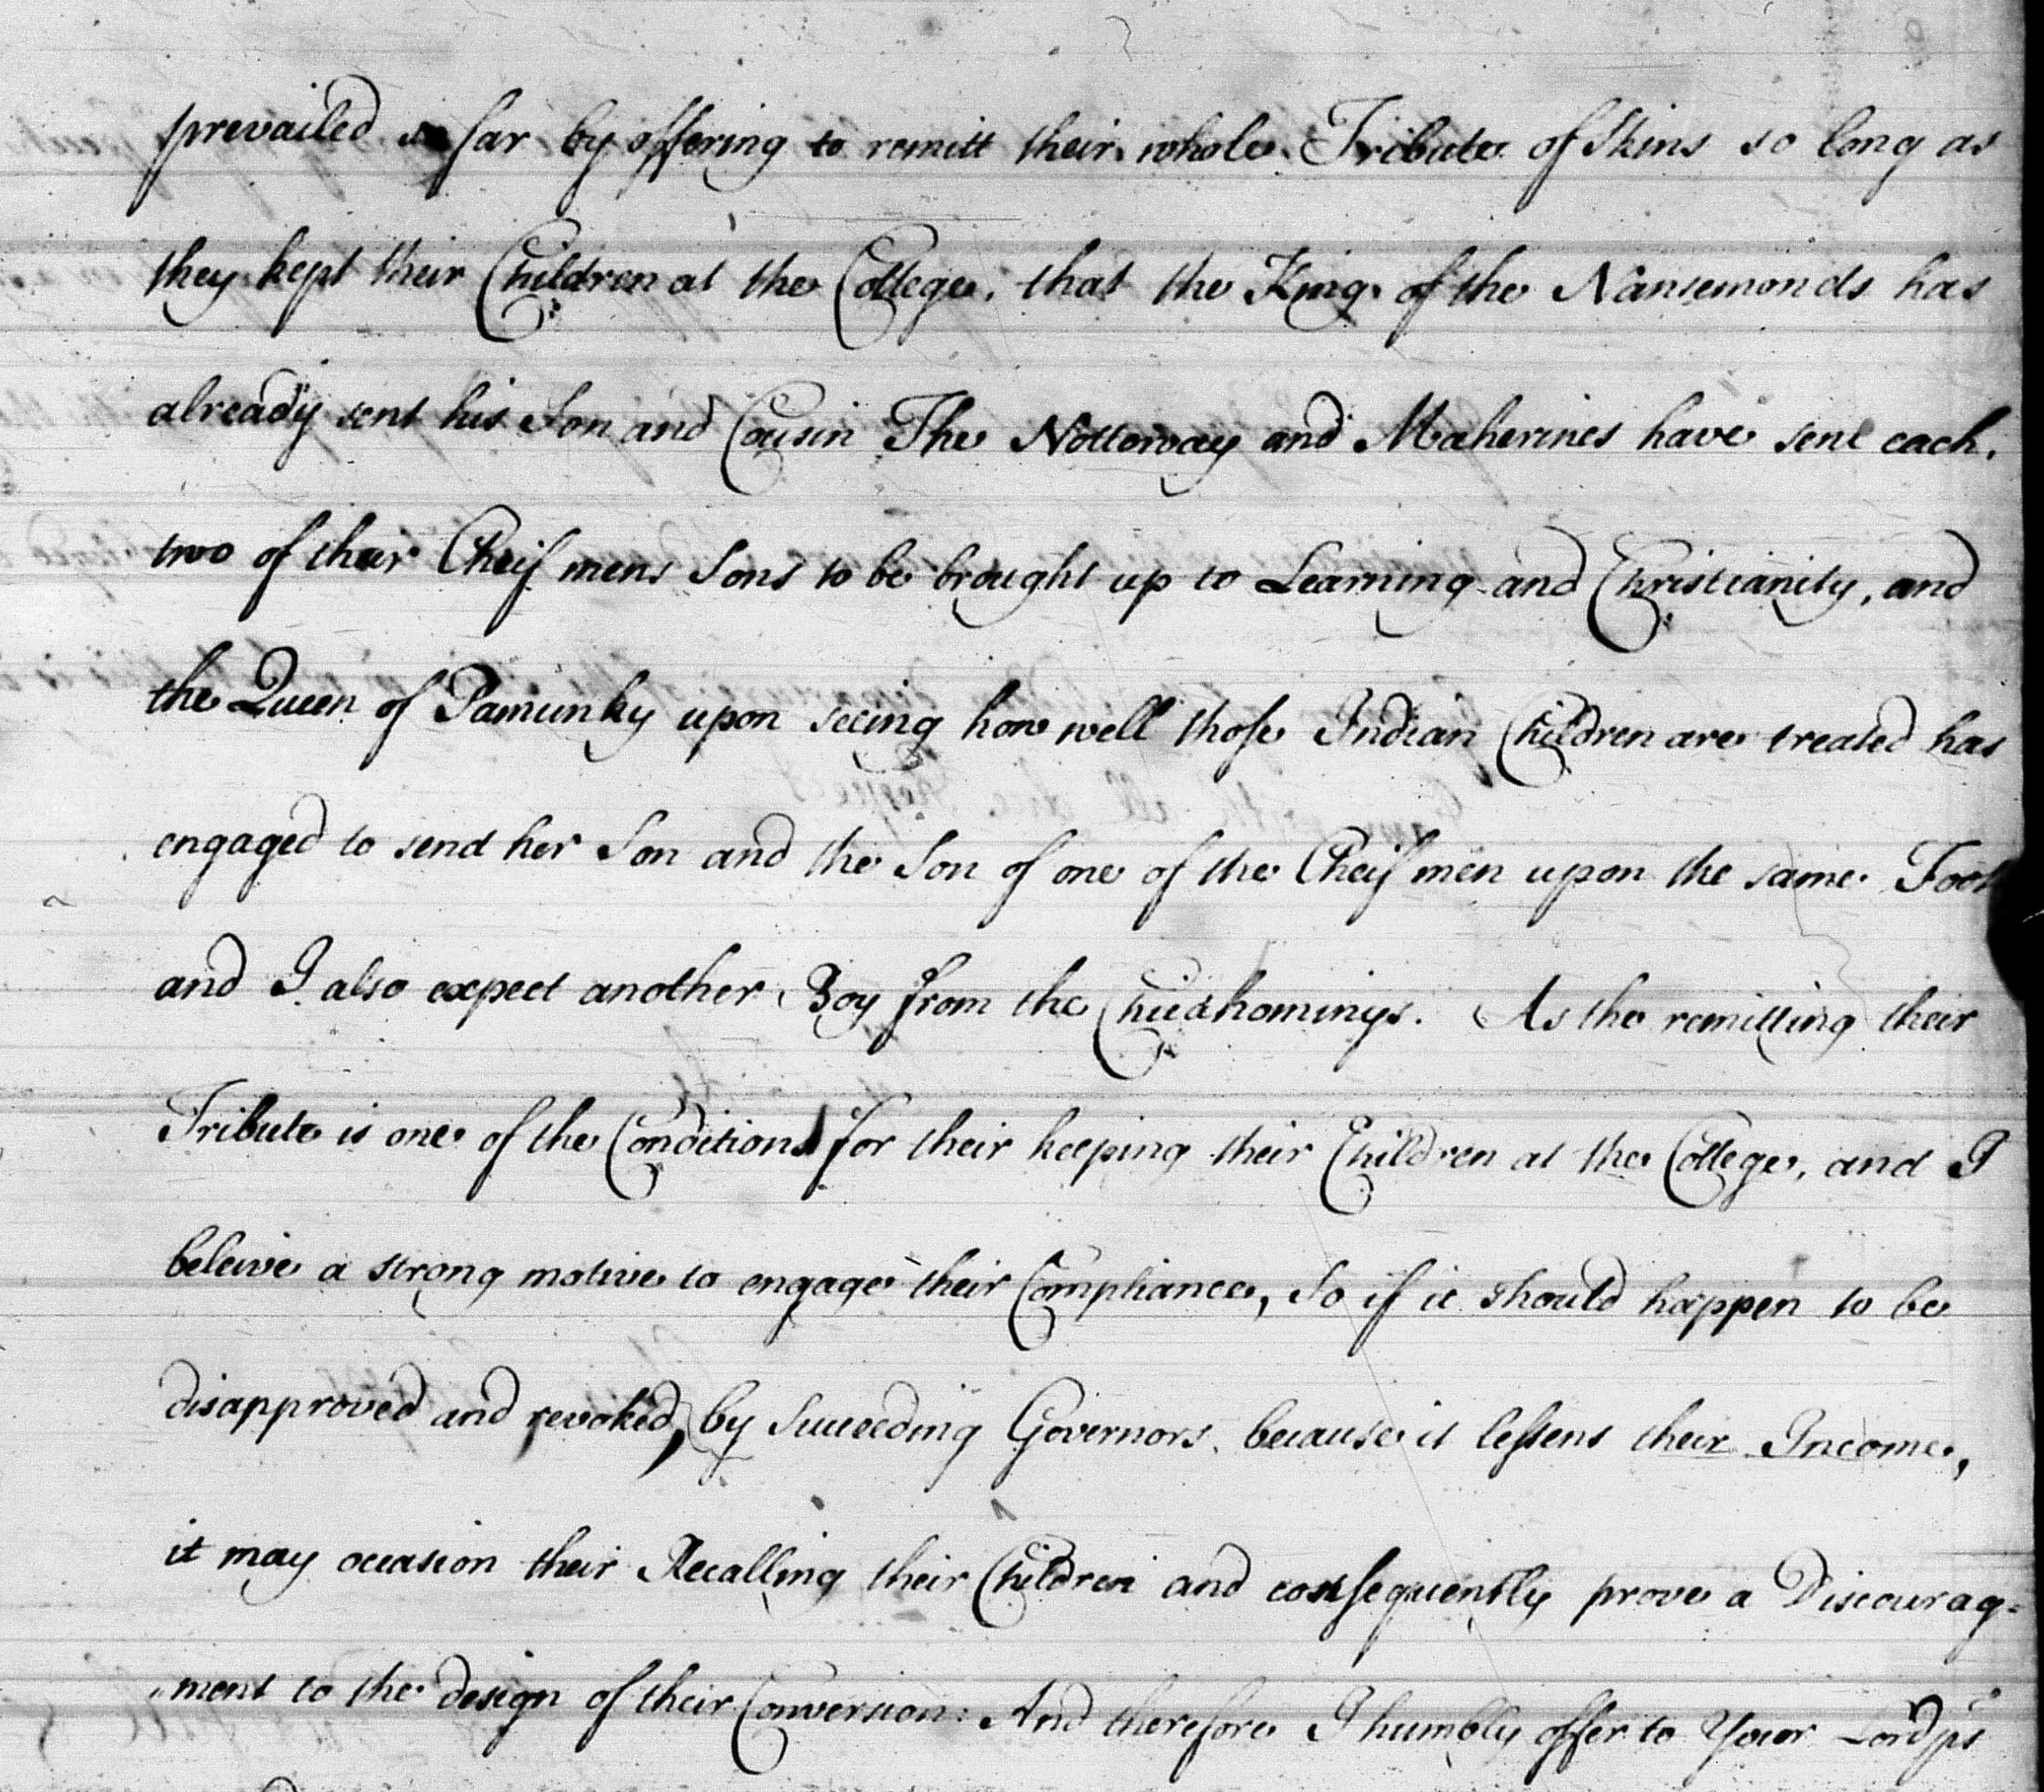 prevailed so far by offering to remitt their whole Tribute of Skins so long as
they kept their Children at the College, that the King of the Nansemonds has
already sent his Son and Cousin The Nottoway and Maherines have sent each,
two of their Cheif mens Sons to be brought up to Learning and Christianity, and
the Queen of Pamunky upon seeing how well those Indian Children are treated has
engaged to send her Son and the Son of one of the Cheif men upon the same Foot
and I also expect another Boy from the Chickhominys. As the remitting their
Tribute is one of the Conditions for their keeping their Children at the College, and I
beleive a strong motive to engage their Compliance, So if it should happen to be
disapproved and revoked, by Succeeding Governors because it lessens their Income,
it may occasion their Recalling their Children and consequently prove a Discourag=
"ment to the design of their Conversion: And therefore I humbly offer to Your Lordps